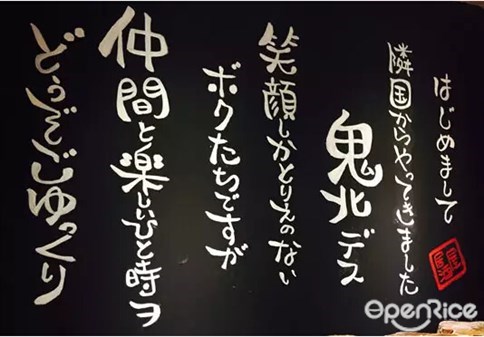 はじめまして
隣国からやってきました
鬼北デス
笑顔しかとりえのない
ボクたちですが
仲間と楽しいひと時ヲ
どうぞごゆっくり
OpenRice